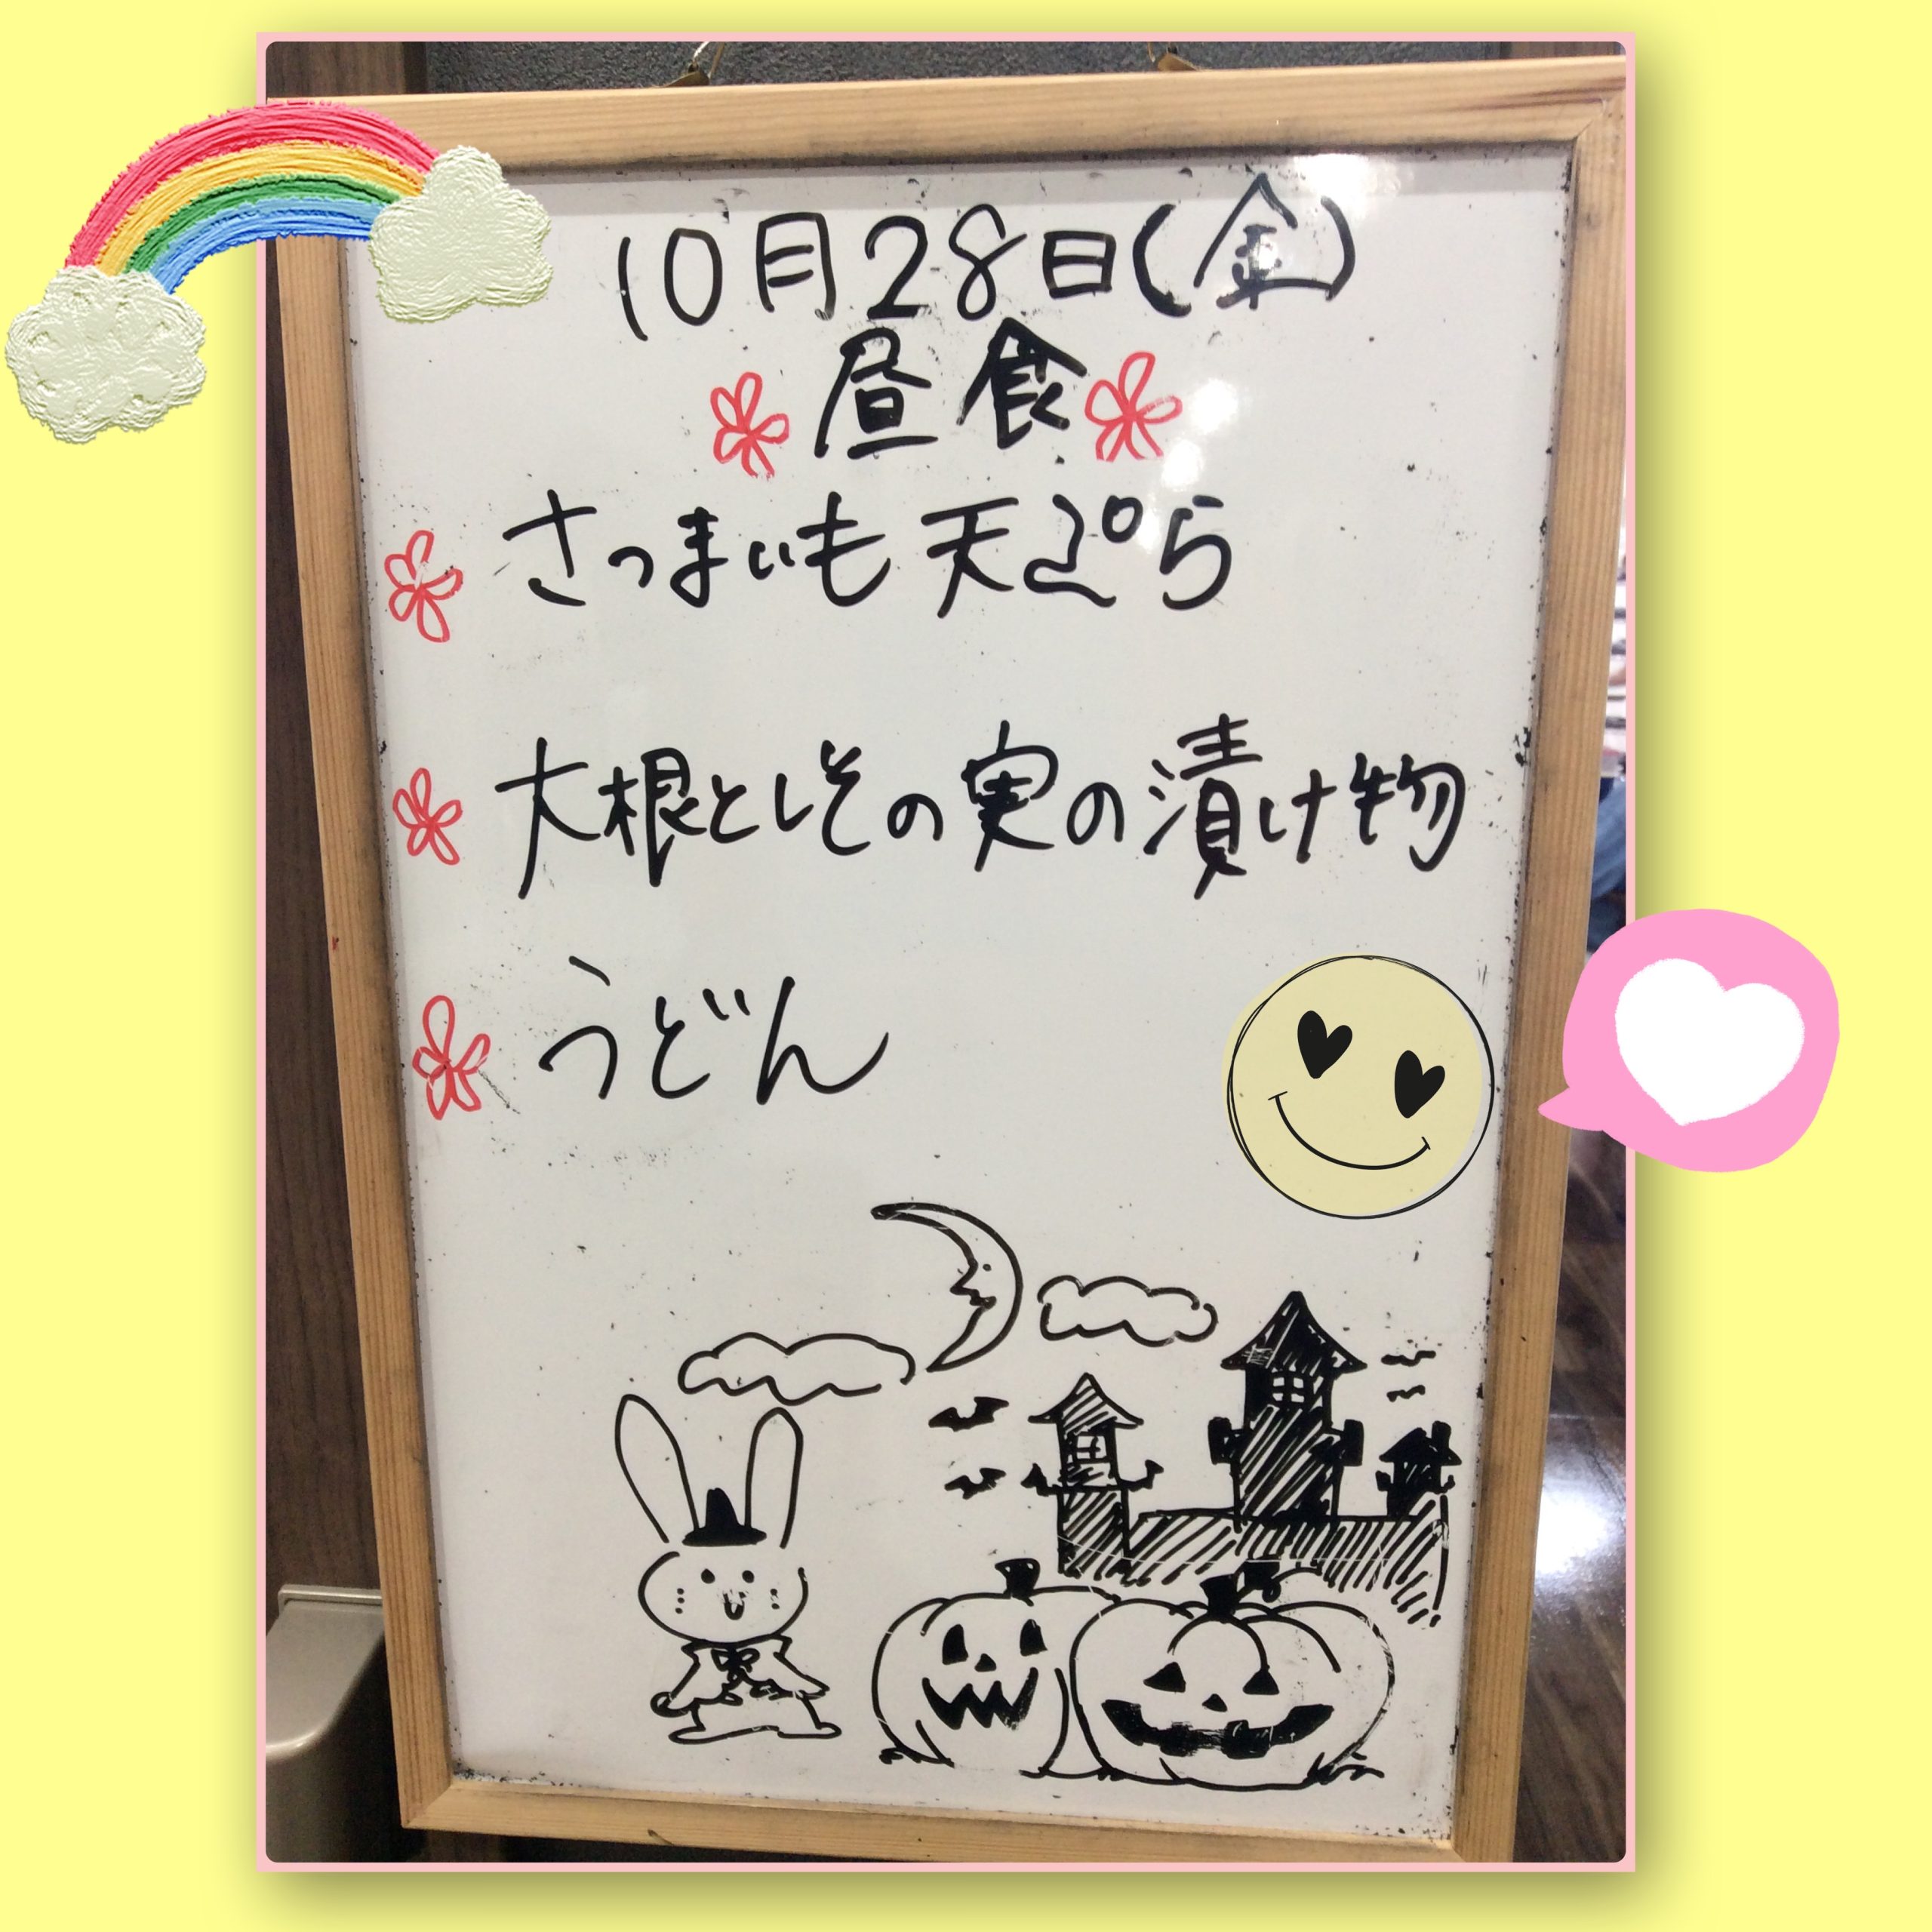 10月28日(金)
昼食
さつまいも天ぷら
大根としその実の漬け物
うどん